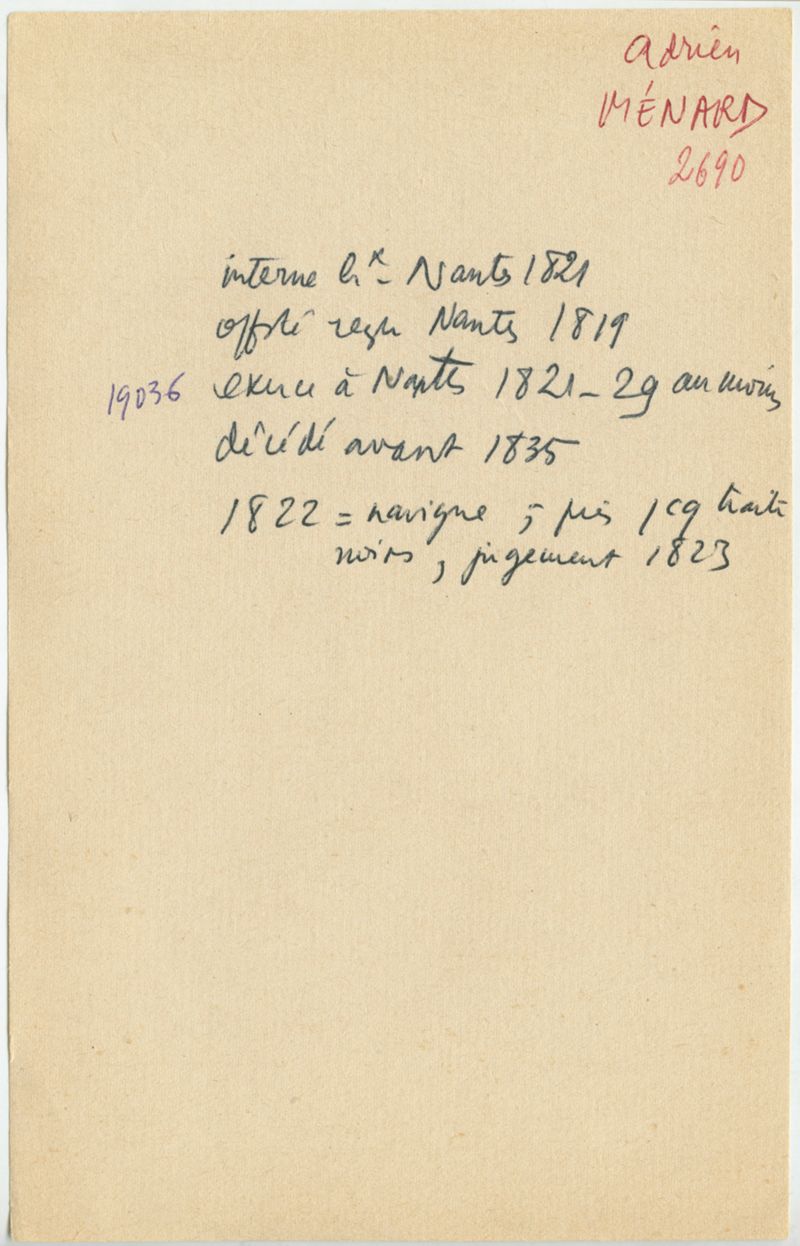 Adrien
MÉNARD
2690
interne hx - Nantes 1821
Nantes 1819
19036 exerce à Nantes 1821-29 au moins
décédé avant 1835
1822 = navigue ; pris traite
noirs, jugement 1823